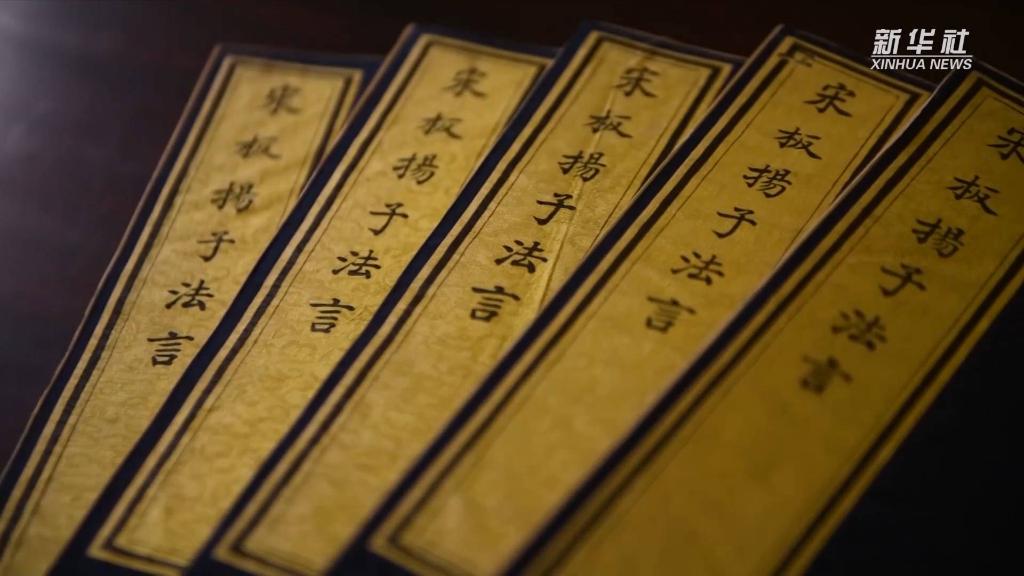 新华社
XINHUA NEWS
宋板揚子法言
宋板揚子法言
宋板揚子法言
宋板揚子法言
宋板揚子法言